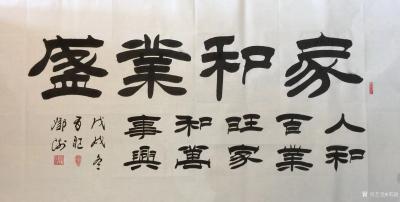 家和業盛
人和
百業
旺家
和萬
事興
戊戌冬